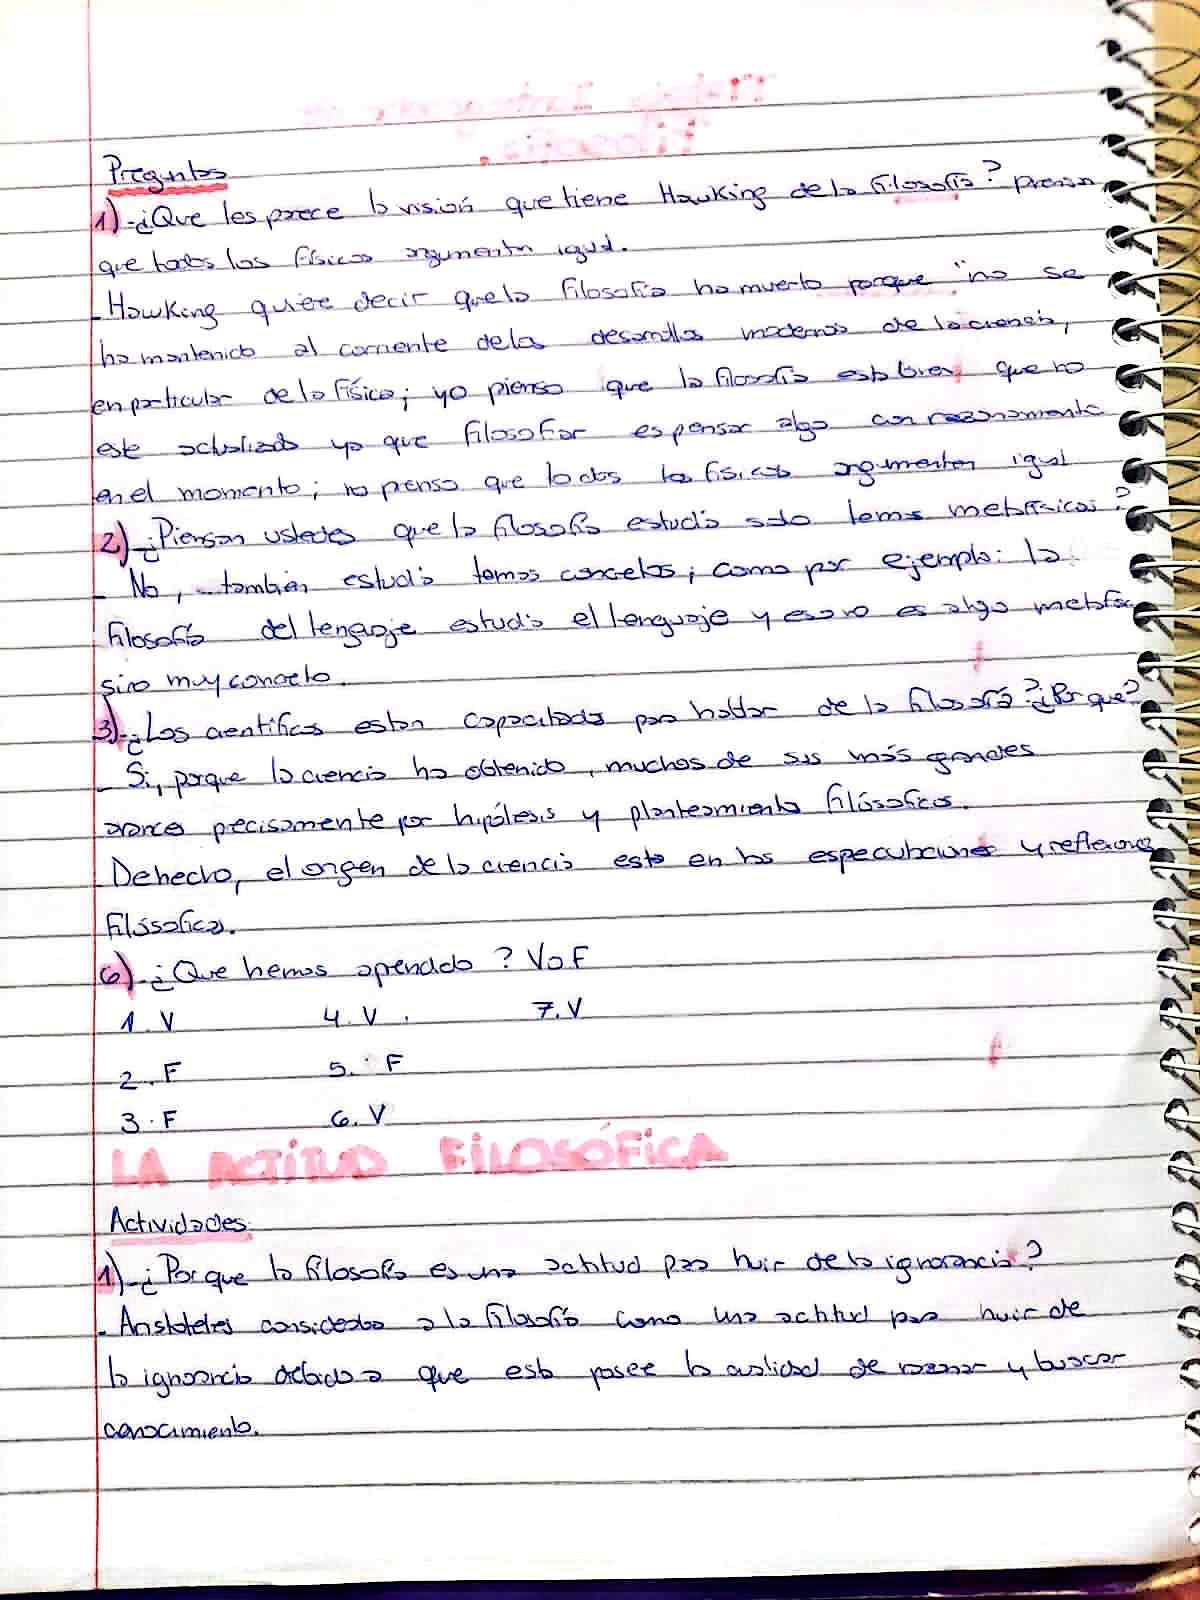 Preguntas
1)-¿Que les parece la visión que tiene Hawking de la filosofía? piensan
que todos los físicos argumentan igual.
- Hawking quiere decir que la filosofía ha muerto porque "no se
ha mantenido al corriente de los desarrollos modernos de la ciencia,
en particular de la física; yo pienso que la filosofía esta bien que no
este actualizada ya que filosofar es pensar algo con razonamiento
en el momento; no pienso que todos los físicos argumenten igual
2)-¿Piensan ustedes que la filosofía estudia solo temas metafísicos?
- No, también estudia temas concretos; como por ejemplo: la
filosofía del lenguaje estudia el lenguaje y eso no es algo
sino muy concreto.
3)-¿Los cientificos estan capacitados para hablar de la filosofía? ¿Por que?
- Si, porque la ciencia ha obtenido, muchos de sus más grandes
avances precisamente por hipótesis y planteamientos filósoficos.
Dehecho, el origen de la ciencia esta en las especulaciones y reflexiones
filósofica.
6)-¿Que hemos aprendido? V o F
1. V 4. V. 7. V
2. F 5. F
3. F 6. V
LA ACTITUD FILOSÓFICA
Actividades:
1)-¿Por que la filosofía es una actitud para huir de la ignorancia?
- Aristoteles consideraba a la filosofía como una actitud para huir de
la ignorancia debido a que esta posee la cualidad de razonar y buscar
conocimiento.